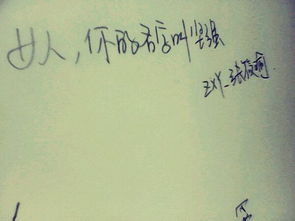 女人，你的名字叫坚强
ZXY_张